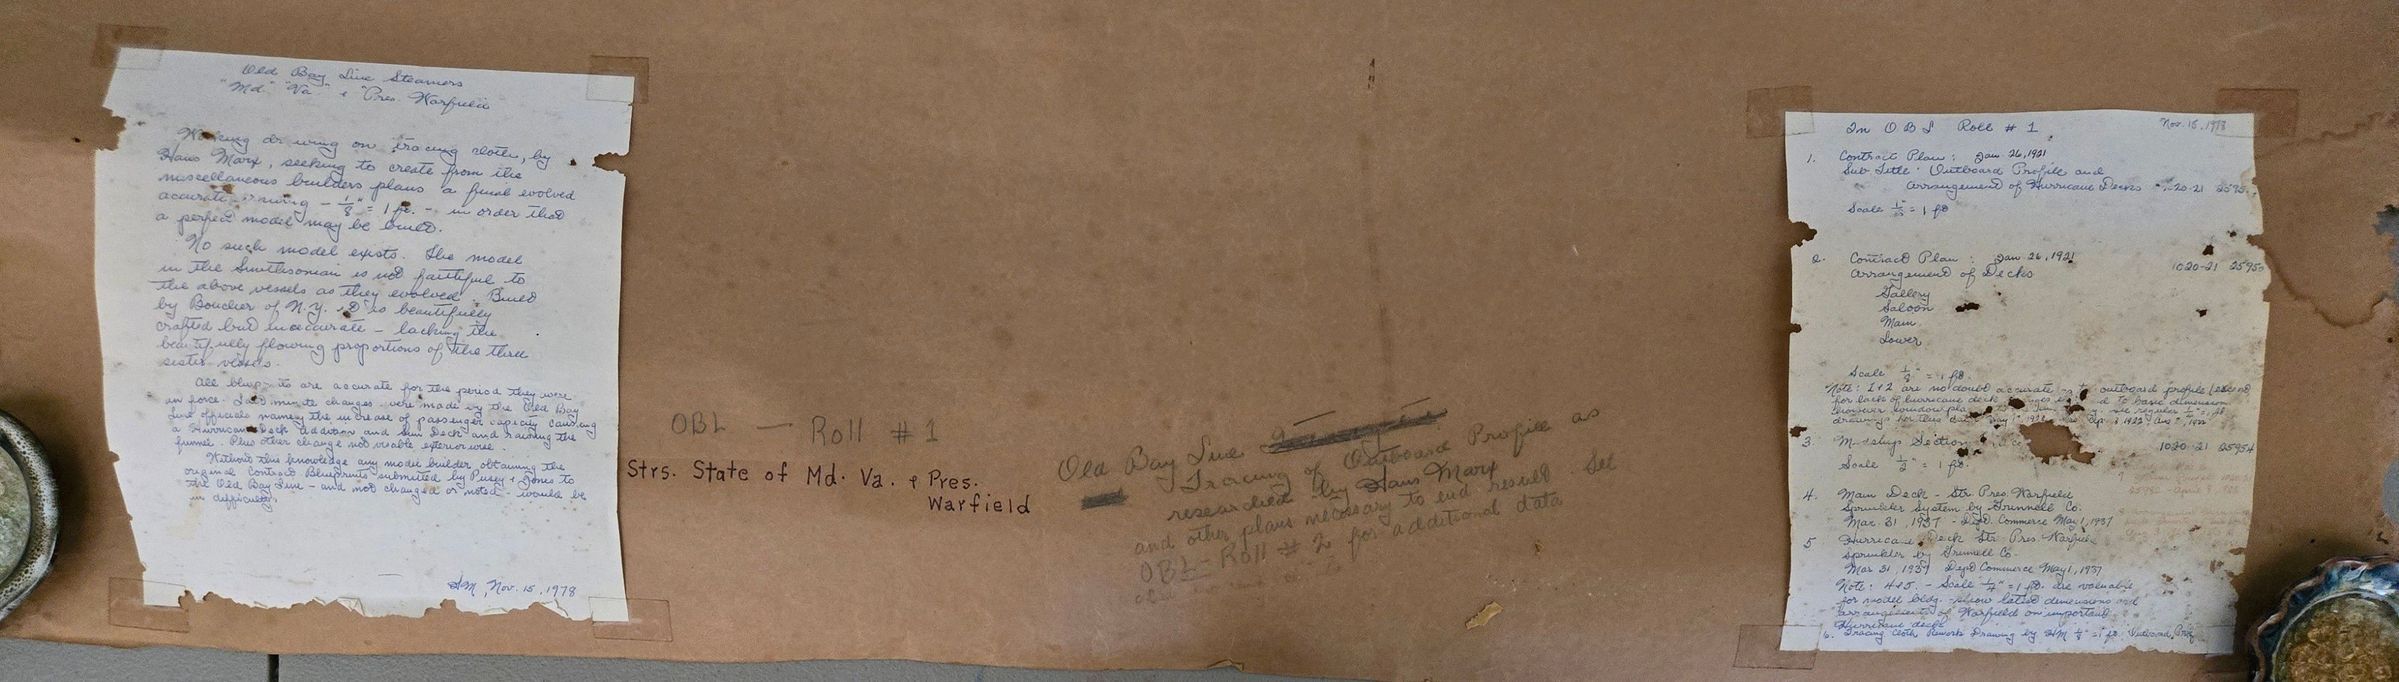 Old Bay Line Steamers
"Md" "Va" & "Pres. Warfield"
Working drawing on tracing cloth, by
Hans Marx, seeking to create from the
miscellaneous builders plans a final evolved
accurate drawing - 1/8" = 1 ft. - in order that
a perfect model may be built.
No such model exists. The model
in the Smithsonian is not faithful to
the above vessels as they evolved. Built
by Boucher of N.Y. it is beautifully
crafted but inaccurate - lacking the
beautifully flowing proportions of the three
sister vessels.
All blueprints are accurate for the period they were
in force. Last minute changes were made by the Old Bay
Line officials namely the increase of passenger capacity causing
a Hurricane Deck addition and Sun Deck and raising the
funnel. Plus other change not visable exteriorwise.
Without this knowledge any model builder obtaining the
original Contract Blueprints submitted by Pusey & Jones to
the Old Bay Line - and not changed or noted - would be
in difficulty.
HM, Nov. 15, 1978
OBL - Roll # 1
Strs. State of Md. Va. & Pres.
Warfield
Old Bay Line
Tracing of Outboard Profile as
researched by Hans Marx
and other plans necessary to end result. See
OBL - Roll # 2 for additional data
Nov. 15, 1978
In OBL Roll # 1
1. Contract Plan: Jan 26, 1921
Sub Title: Outboard Profile and
Arrangement of Hurricane Decks
Scale = 1 ft
2. Contract Plan: Jan 26, 1921
Arrangement of Decks 1020-21 25950
Gallery
Saloon
Main
Lower
Scale 1/8" = 1 ft.
Note: 1 & 2 are no doubt accurate outboard profile (except
for lack of hurricane deck changes to basic dimension
drawing for this date
3. Midship Section 1020-21 25954
Scale 1/2" = 1 ft.
4. Main Deck - Str. Pres. Warfield
Sprinkler System by Grinnell Co.
Mar. 31, 1937 - Dept. Commerce May 1, 1937
5 Hurricane Deck Str. Pres. Warfield
Sprinkler by Grinnell Co.
Mar 31, 1937 Dept Commerce May 1, 1937
Note: 4 & 5. - Scale 1/4" = 1 ft. are valuable
for model bldg. - show latest dimensions and
arrangements of Warfield on important
Hurricane deck
6. Tracing Cloth Rework Drawing by HM 1/8" = 1 ft. Outboard Prof.